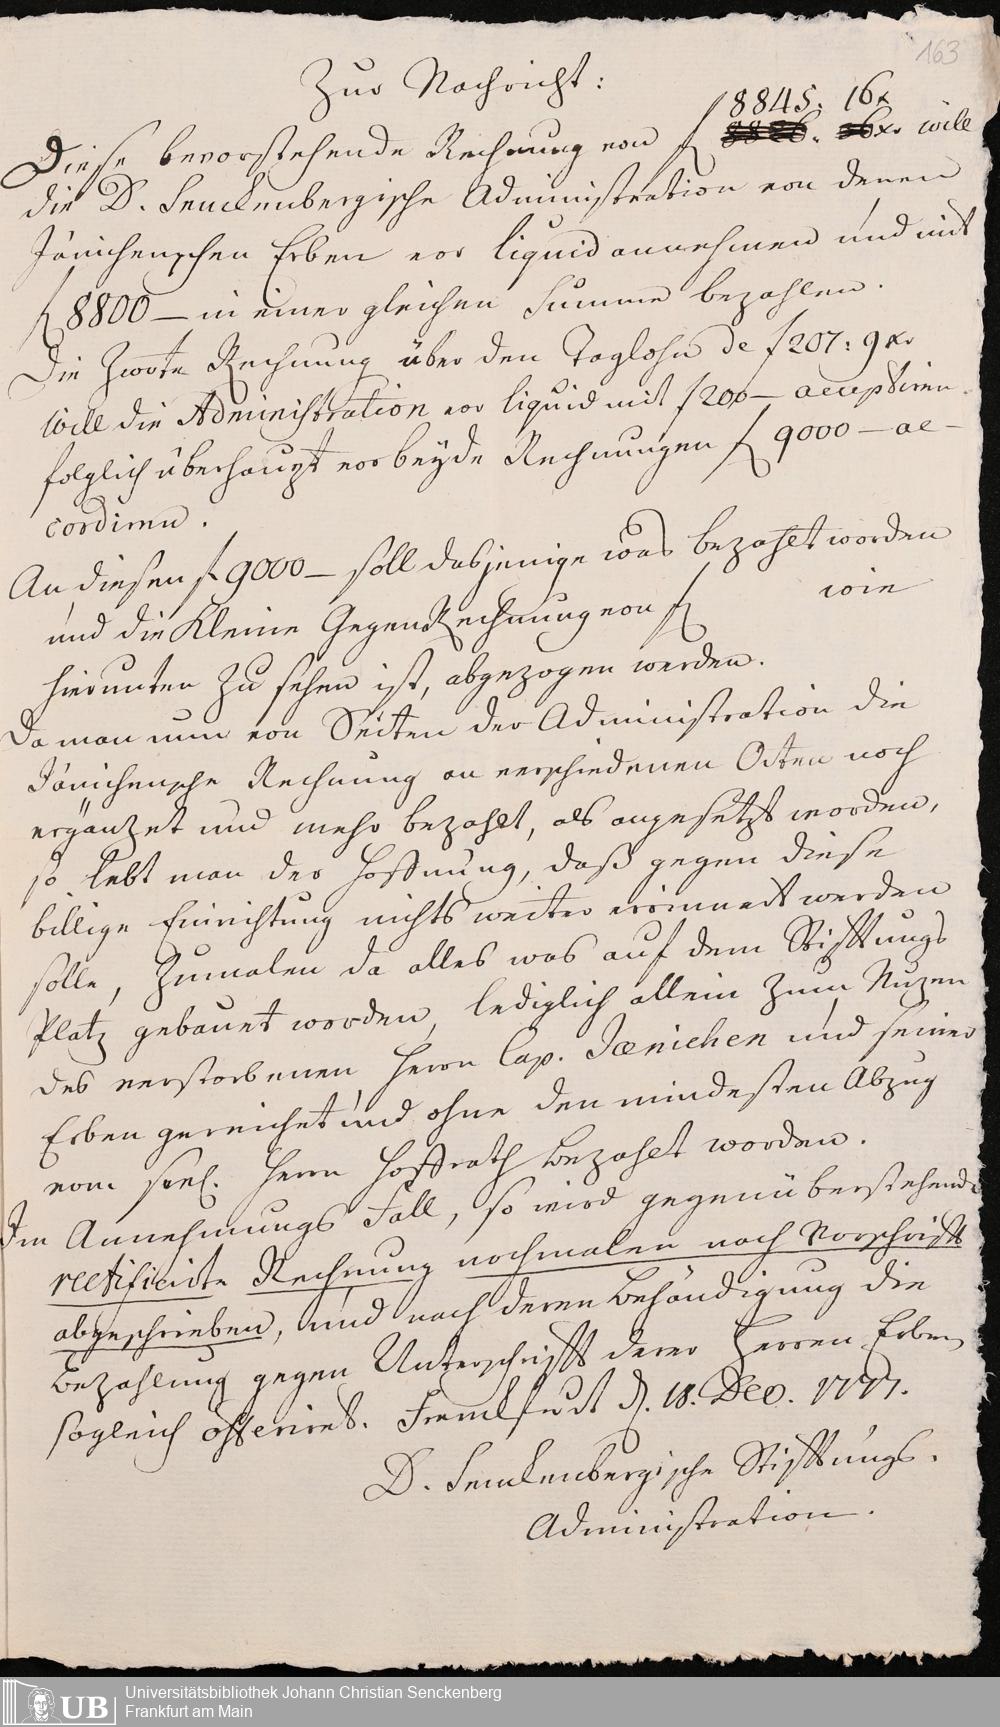 163
Zur Nachricht:
8845. 16x
Diese bevorstehende Rechnung von f xr will
die D. Senckenbergische Administration von denen
Jänichenschen Erben vor liquid annehmen und mit
f 8800 — in einer gleichen Summe bezahlen.
Die Zwote Rechnung über den Taglohn de f 207: 9 xr
will die Administration vor liquid mit f 200 — acceptiren
folglich überhaupt vor beyde Rechnungen f 9000 — ac-
cordiren.
An diesen f 9000 — soll dasjenige was bezahlt worden
und die Kleine GegenRechnung von f wie
hierunten zu sehen ist, abgezogen werden.
Da man nun von Seiten der Administration die
Jänichensche Rechnung an verschiedenen Orten noch
ergäntzet und mehr bezahlt, als angesetzt worden,
so lebt man der Hoffnung, daß gegen diese
billige Einrichtung nichts weiter erinnert werden
solle, Zumalen da alles was auf dem Stifftungs
Platz gebauet worden, lediglich allein zum Nuzen
des verstorbenen Herrn Cap. Jænichen und seiner
Erben gereichet und ohne den mindesten Abzug
vom seel. Herrn Hoffrath bezahlt worden.
Im Annehmungs Fall, so wird gegenüberstehende
rectificirte Rechnung nochmalen nach Vorschrifft
abgeschrieben, und nach deren Behändigung die
Bezahlung gegen Unterschrifft derer Herren Erben
sogleich offeriret. Franckfurt d. 18. Dec. 1777.
D. Senckenbergische Stifftungs.
Administration.
UB
Universitätsbibliothek Johann Christian Senckenberg
Frankfurt am Main